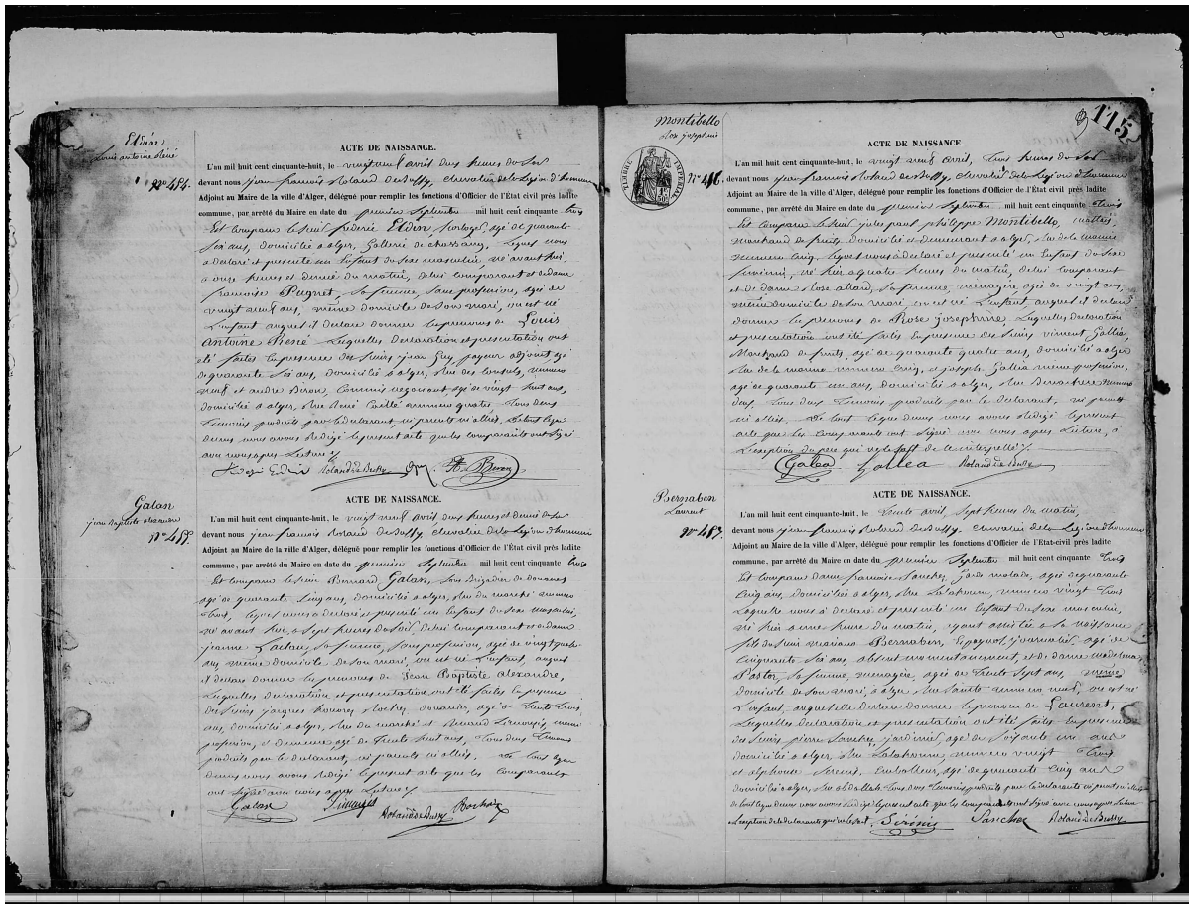 Louis Antoine René
ACTE DE NAISSANCE.
L'an mil huit cent cinquante-huit, le vingt neuf avril deux heures du Soir
devant nous jean françois Roland de Bussy, chevalier de la Légion d'honneur
Adjoint au Maire de la ville d'Alger, délégué pour remplir les fonctions d'Officier de l'État civil près ladite
commune, par arrêté du Maire en date du premier Septembre mil huit cent cinquante trois
Est comparu le Sieur féderic horloger, agé de quarante
six ans, domicilié a alger, Gallerie de lequel nous
a déclaré et presenté un Enfant du Sexe masculin, né avant hier
a onze heures et demie du matin, de lui comparant et de dame
françoise Pugnet, sa femme, sans profession, agée de
vingt neuf ans, même domicile de son mari, ou est né
L'enfant auquel il declare donner les prenoms de Louis
Antoine René. Lesquelles declaration et presentation ont
été faites en presence des Sieurs jean Guy, payeur adjoint agé
de quarante six ans, domicilié a alger, Rue des Consuls, numero
neuf et andré Biron, Commis negociant, agé de vingt huit ans,
domicilié a alger, Rue René Caillé numero quatre. Tous deux
temoins produits par le declarant ni parents ni alliés. De tout ce que
dessus nous avons Redigé le present acte que les comparants ont Signé
avec nous apres Lecture
Roland de Bussy Biron
Galan
jean Baptiste Alexandre
ACTE DE NAISSANCE.
L'an mil huit cent cinquante-huit, le vingt neuf avril, deux heures et demie du Soir
devant nous jean françois Roland de Bussy, chevalier de la Légion d'honneur
Adjoint au Maire de la ville d'Alger, délégué pour remplir les fonctions d'Officier de l'État civil près ladite
commune, par arrêté du Maire en date du premier Septembre mil huit cent cinquante trois
Est comparu le Sieur Bernard Galan, Sous Brigadier de douanes
agé de quarante cinq ans, domicilié a alger, Rue du marché numero
trois, lequel nous a déclaré et presenté un Enfant du Sexe masculin,
né avant hier, a Sept heures du Soir, de lui comparant et de dame
jeanne sa femme, Sans profession, agée de vingt quatre
ans, même domicile de son mari, ou est né L'enfant, auquel
il declare donner les prenoms de Jean Baptiste Alexandre,
Lesquelles declaration et presentation ont été faites en presence
des Sieurs jacques douanier, agé de trente trois
ans, domicilié a alger, Rue du marché et même
profession, et demeure agé de Trente huit ans, Tous deux Temoins
produits par le declarant, ni parents ni alliés. De tout ce que
dessus nous avons Redigé le present acte que les Comparants
ont Signé avec nous apres Lecture
Galan Roland de Bussy
115
Montibello
Rose josephine
TIMBRE IMPERIAL
1F 50c
ACTE DE NAISSANCE
L'an mil huit cent cinquante-huit, le vingt neuf avril, trois heures du Soir
devant nous jean françois Roland de Bussy, chevalier de la Légion d'honneur
Adjoint au Maire de la ville d'Alger, délégué pour remplir les fonctions d'Officier de l'État civil près ladite
commune, par arrêté du Maire en date du premier Septembre mil huit cent cinquante trois
Est comparu le Sieur jules paul philippe Montibello, maltais
Marchand de fruits domicilié et demeurant a alger, Rue de la marine
numero cinq, lequel nous a déclaré et presenté un Enfant du Sexe
feminin, né hier a quatre heures du matin, de lui comparant
et de dame Rose allard, Sa femme, menagère, agée de vingt ans,
même domicile de son mari ou est né L'enfant auquel il declare
donner les prenoms de Rose josephine, Lesquelles declaration
et presentation ont été faites en presence des Sieurs vincent Gallia,
Marchand de fruits, agé de quarante quatre ans, domicilié a alger
Rue de la marine, numero cinq, et joseph Gallia meme profession,
agé de quarante un ans, domicilié a alger, Rue numero
deux, Tous deux Temoins produits par le declarant, ni parents
ni alliés. De tout ce que dessus nous avons Redigé le present
acte que les Comparants ont Signé avec nous apres Lecture, a
L'exception du pere qui ne le sait de ce interpellé
Galea Gallea Roland de Bussy
Bernaben
Laurent
ACTE DE NAISSANCE.
L'an mil huit cent cinquante-huit, le trente avril, Sept heures du matin,
devant nous jean françois Roland de Bussy chevalier de la Légion d'honneur
Adjoint au Maire de la ville d'Alger, délégué pour remplir les fonctions d'Officier de l'État-civil près ladite
commune, par arrêté du Maire en date du premier Septembre mil huit cent cinquante trois
Est comparu dame françoise Sanchez, garde malade, agée de quarante
cinq ans, domiciliée a alger, Rue numero vingt trois
Laquelle nous a déclaré et presenté un Enfant du Sexe masculin,
né hier a une heure du matin, ayant assistée a la naissance
fils du Sieur mariano Bernaben, Espagnol, journalier, agé de
Cinquante Six ans, absent momentanement, et de dame
Pastor, Sa femme, menagère, agée de trente Sept ans, même
domicile de son mari, a alger Rue numero neuf, ou est né
L'enfant, auquel elle declare donner le prenom de Laurent,
Lesquelles declaration et presentation ont été faites en presence
des Sieurs pierre Sanchez, jardinier, agé de Soixante un ans
domicilié a alger, Rue numero vingt trois
et alphonse Emballeur, agé de quarante Cinq ans
domicilié a alger, Rue abdallah. Tous deux Temoins produits par la declarante ni parents ni alliés
de tout ce que dessus nous avons Redigé le present acte que les comparants ont Signé avec nous apres Lecture
a L'exception de la declarante qui ne le sait. Sanchez Roland de Bussy